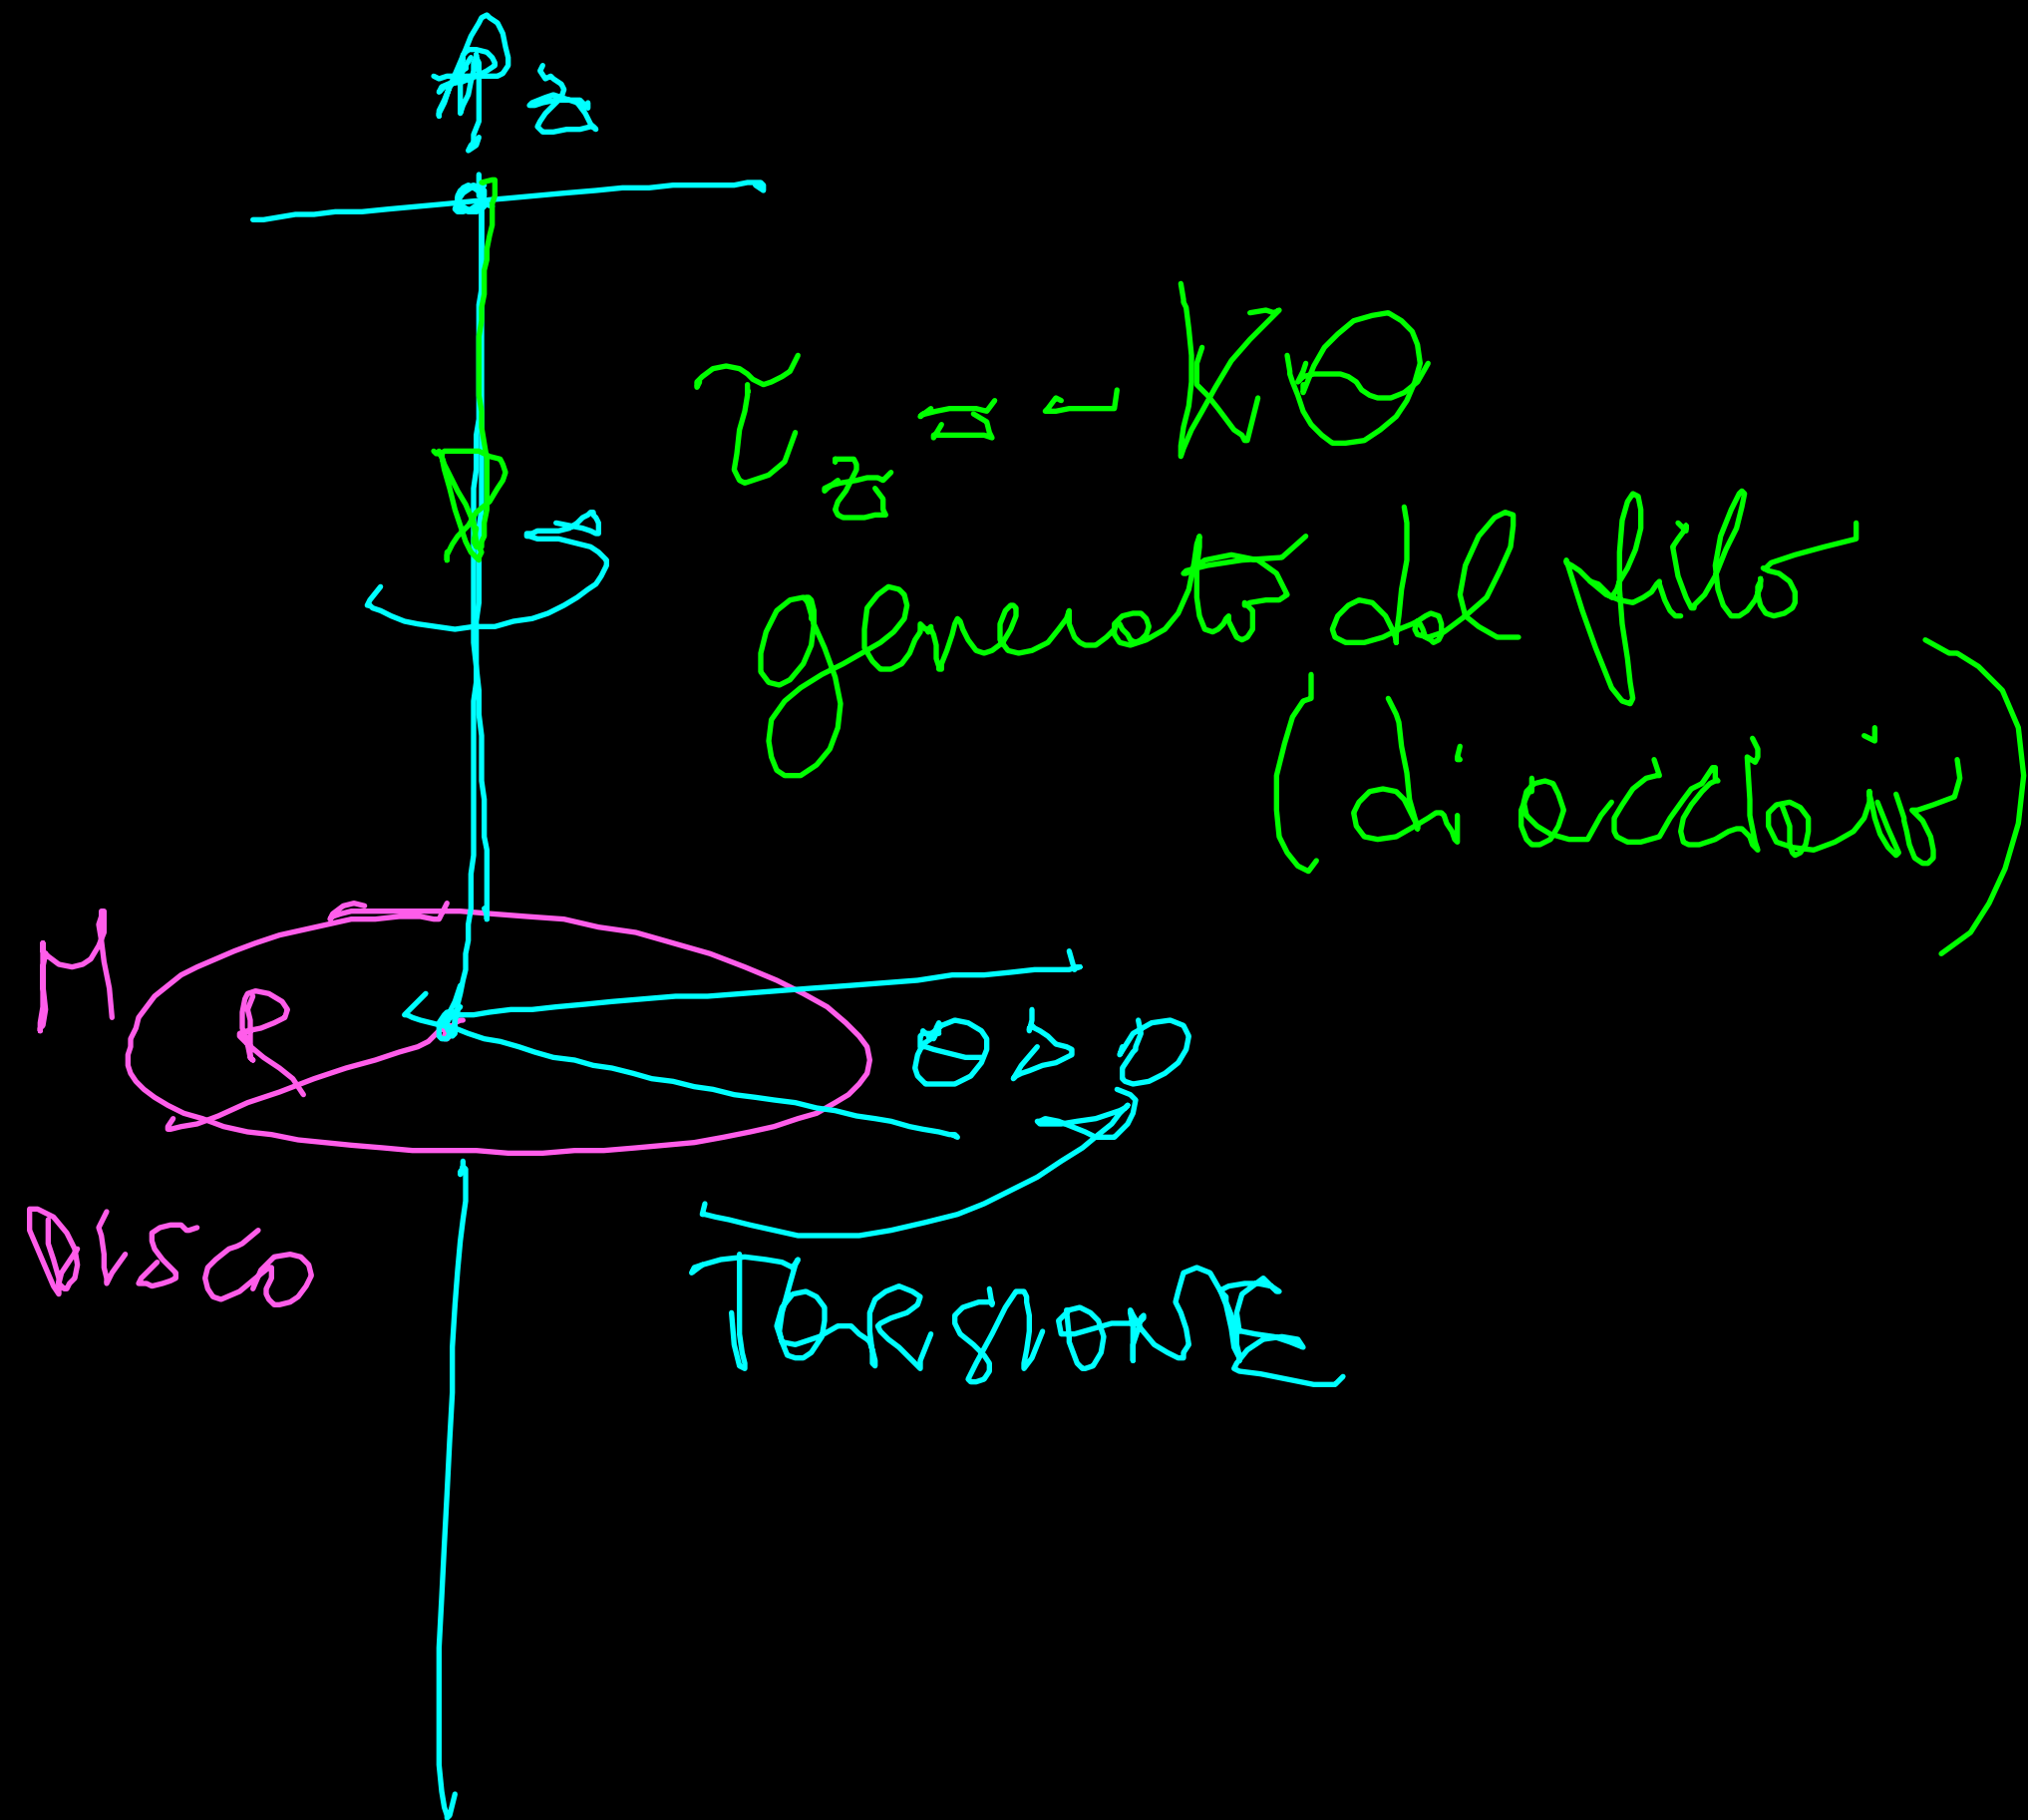 z
τz = - Kθ
generato dal filo
(di acciaio)
M
R
θ > 0
DISCO
TORSIONE